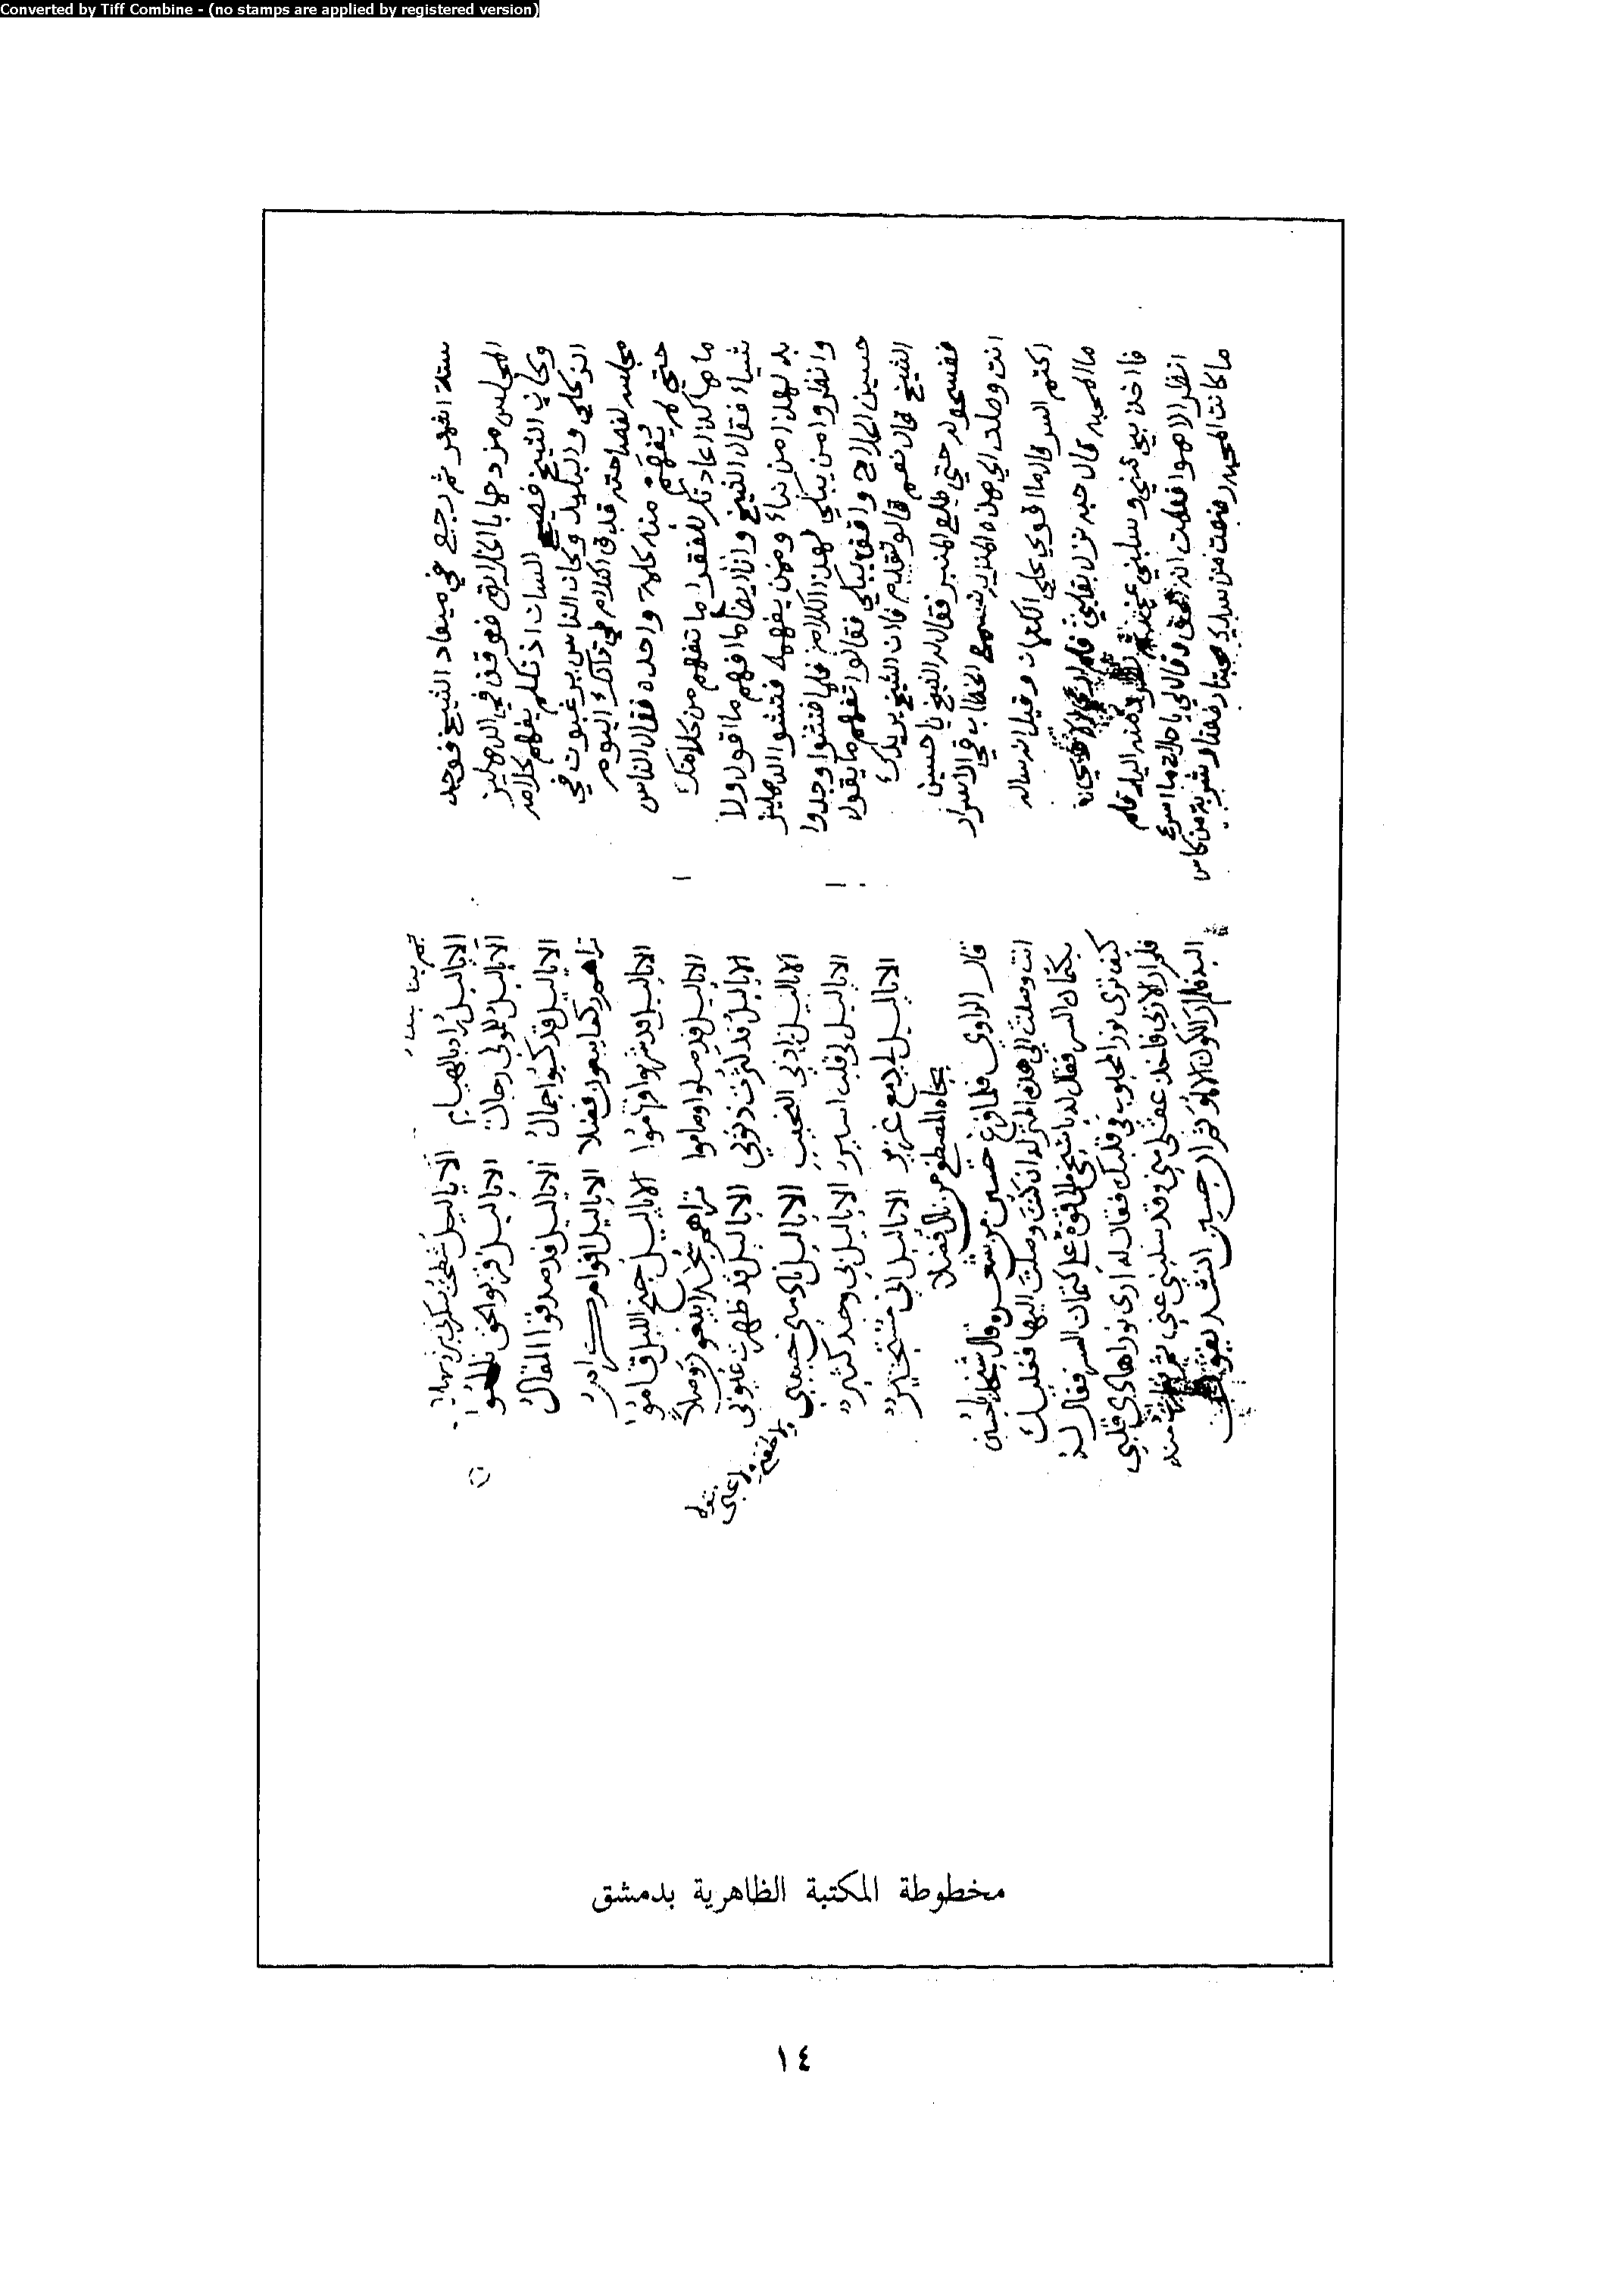 Converted by Tiff Combine - (no stamps are applied by registered version)
ستة اشهر ثم رجع في ميعاد الشيخ فوجد
المجلس مزدحما بالخلايق فوقف في الدهليز
وكان الشيخ فصيح اللسان اذ تكلم يفهم كلامه
الزكي والبليد وكان الناس يرغبون في
مجلسه لفصاحته فدق الكلام في ذالك اليوم
حتي لم يفهم منه كلمة واحده فقال الناس
ما هاكذا عادتك الفقرا ما تفهم من كلامك
شياء فقال الشيخ وانا ايضا ما افهم ما اقول ولا
بد لهذا من نباء ومن يفهمه فتشو الدهليز
وانظروا من يبكي لهذا الكلام فلما فتشوا وجدوا
حسين الحلاج واقف يبكي فقالوا تفهم ما يقول
الشيخ قال نعم قالو تقدم فان الشيخ يريدك
ففسحو له حتي طلع المنبر فقال له الشيخ يا حسين
انت وصلت الي هذه المنزله تسمع الخطاب في الاسرار
اكتم السر قال ما اقوي علي الكتمان وقيل انه ساله
ما المحبه قال حبه نزل بقلبي فلم
فااخذني مني وسلبني عني
انظر الا هوا فعلمت انه الحق وقال لي يا حلاج ما اسرع
ما كانت المحبه رضعت من محبتنا وشربة من كاس
الايا ليل زاد بالهيام
الايا ليل للمولي رجال الايا ليل قربوا لحق
الايا ليل قد ركبوا جمال الايا ليل قد صدقوا المقال
تراهم ركعا يبغون فضلا الايا ليل اقوام
الايا ليل قد شربوا فهاموا الايا ليل جنح الليل قاموا
الايا ليل قد صلوا وصاموا تراهم سجدا يبغو وصلا
الايا ليل قد كثرت ذنوبي الايا ليل قد ظهرت عيوبي
الايا ليل زاد بي النحيب الايا ليل نادمني حبيبي
الايا ليل لي قلب اسير الايا ليل بي وجد كثير
الايا ليل لي دمع غزير الايا ليل اني مستجير
بجاه المصطفي من نال فضلا
قال الراوي فلما فرغ حسين من شعره قال شيخه يا حسين
انت وصلت الي هذه المنزله ان كنت وصلت اليها فعليك
بكتمان السر فقال له يا شيخ مالي قوة علي كتمان السر فقال له
كيف تري نور المحبوب في قلبك فقال له اري نور الهادي في قلبي
فلم ازل ادني فاخذ عقلي مني وقد سلبني عني
حسين انشد يقول
مخطوطة المكتبة الظاهرية بدمشق
١٤